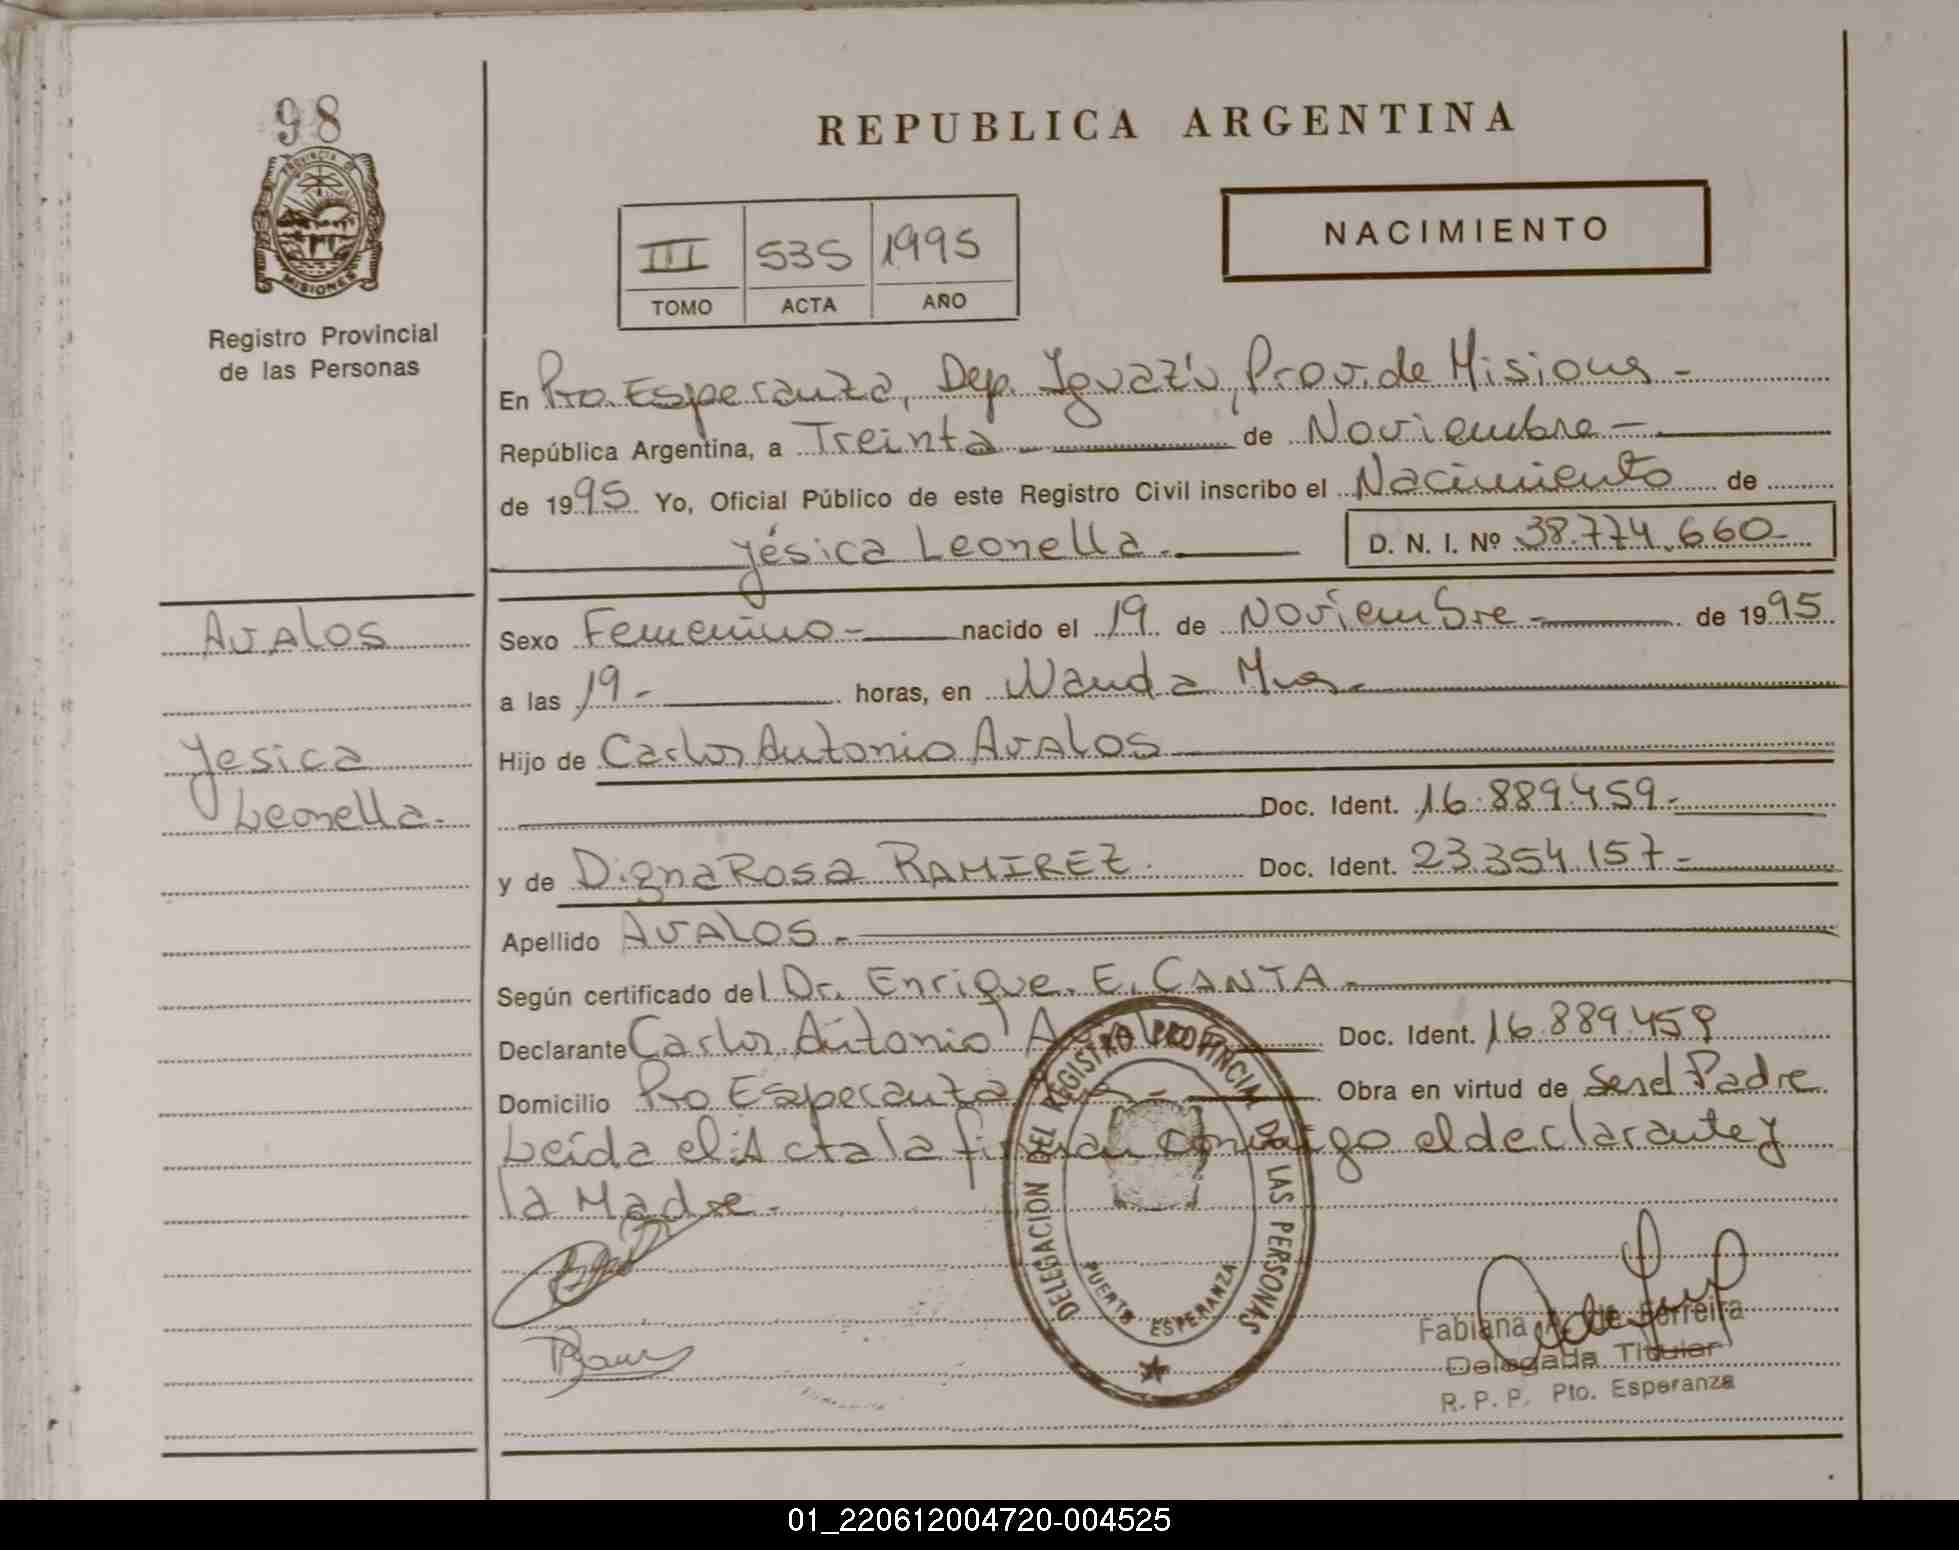 98
PROVINCIA DE
MISIONES
Registro Provincial
de las Personas
REPUBLICA ARGENTINA
NACIMIENTO
III 535 1995
TOMO ACTA AÑO
En Pto. Esperanza, Dep. Iguazú, Prov. de Misiones -
República Argentina, a Treinta de Noviembre -
de 1995 Yo, Oficial Público de este Registro Civil inscribo el Nacimiento de
Yésica Leonella.
D. N. I. Nº 38.774.660-
AVALOS
Yesica
Leonella.
Sexo Femenino - nacido el 19 de Noviembre - de 1995
a las 19 - horas, en Wanda Mnes.
Hijo de Carlos Antonio AVALOS
Doc. Ident. 16.889459-
y de Digna Rosa RAMIREZ. Doc. Ident. 23.354.157-
Apellido AVALOS -
Según certificado del Dr. Enrique. E. CANTA -
Declarante Carlos Antonio AVALOS Doc. Ident. 16.889.459
Domicilio Pto Esperanza Obra en virtud de Ser el Padre
Leída el Acta la firman conmigo el declarante y
la Madre -
DELEGACION DEL REGISTRO PROVINCIAL DE LAS PERSONAS
PUERTO ESPERANZA
Fabiana A. de Ferreira
Delegada Titular
R. P. P. Pto. Esperanza
01_220612004720-004525